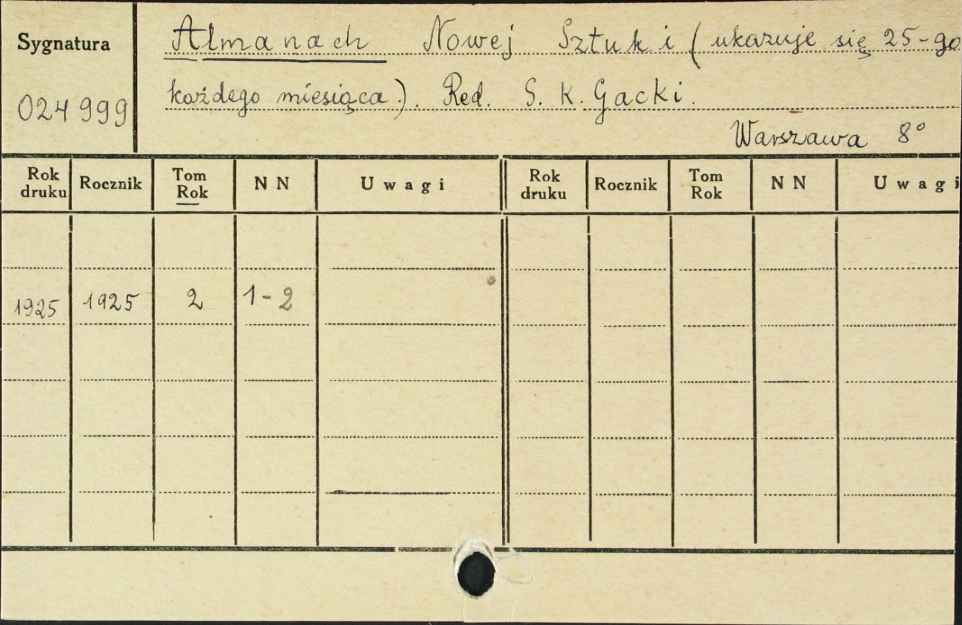 Sygnatura
024999
Almanach Nowej Sztuki (ukazuje się 25-go
każdego miesiąca). Red. S. K. Gacki.
Warszawa 8°
Rok druku Rocznik Tom Rok N N Uwagi Rok druku Rocznik Tom Rok N N Uwagi
1925 1925 2 1-2